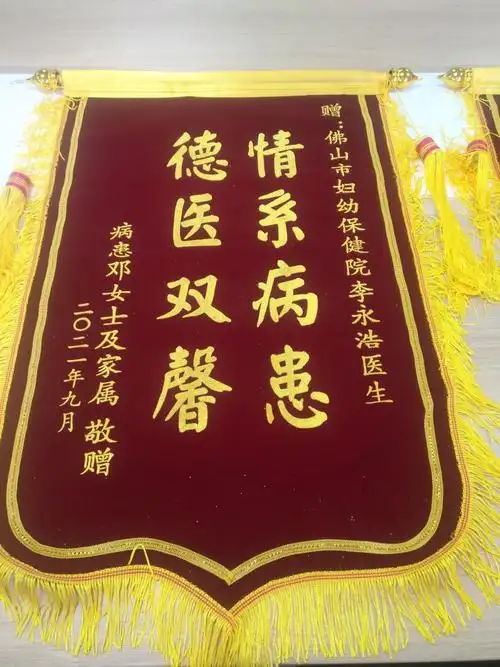 赠：佛山市妇幼保健院李永浩医生
情系病患
德医双馨
病患邓女士及家属 敬赠
二〇二一年九月